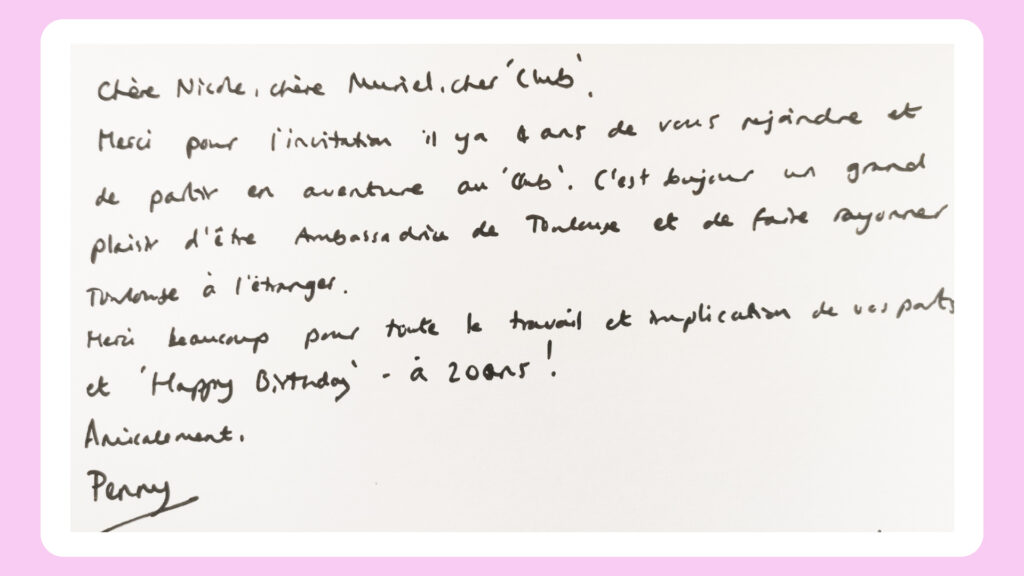 Chère Nicole, chère Muriel, cher 'Club',
Merci pour l'invitation il y a 4 ans de vous rejoindre et
de partir en aventure au 'Club'. C'est toujour un grand
plaisir d'être Ambassadrice de Toulouse et de faire rayonner
Toulouse à l'étranger.
Merci beaucoup pour toute le travail et implication de vos parts
et 'Happy Birthday' - à 20ans !
Amicalement,
Penny